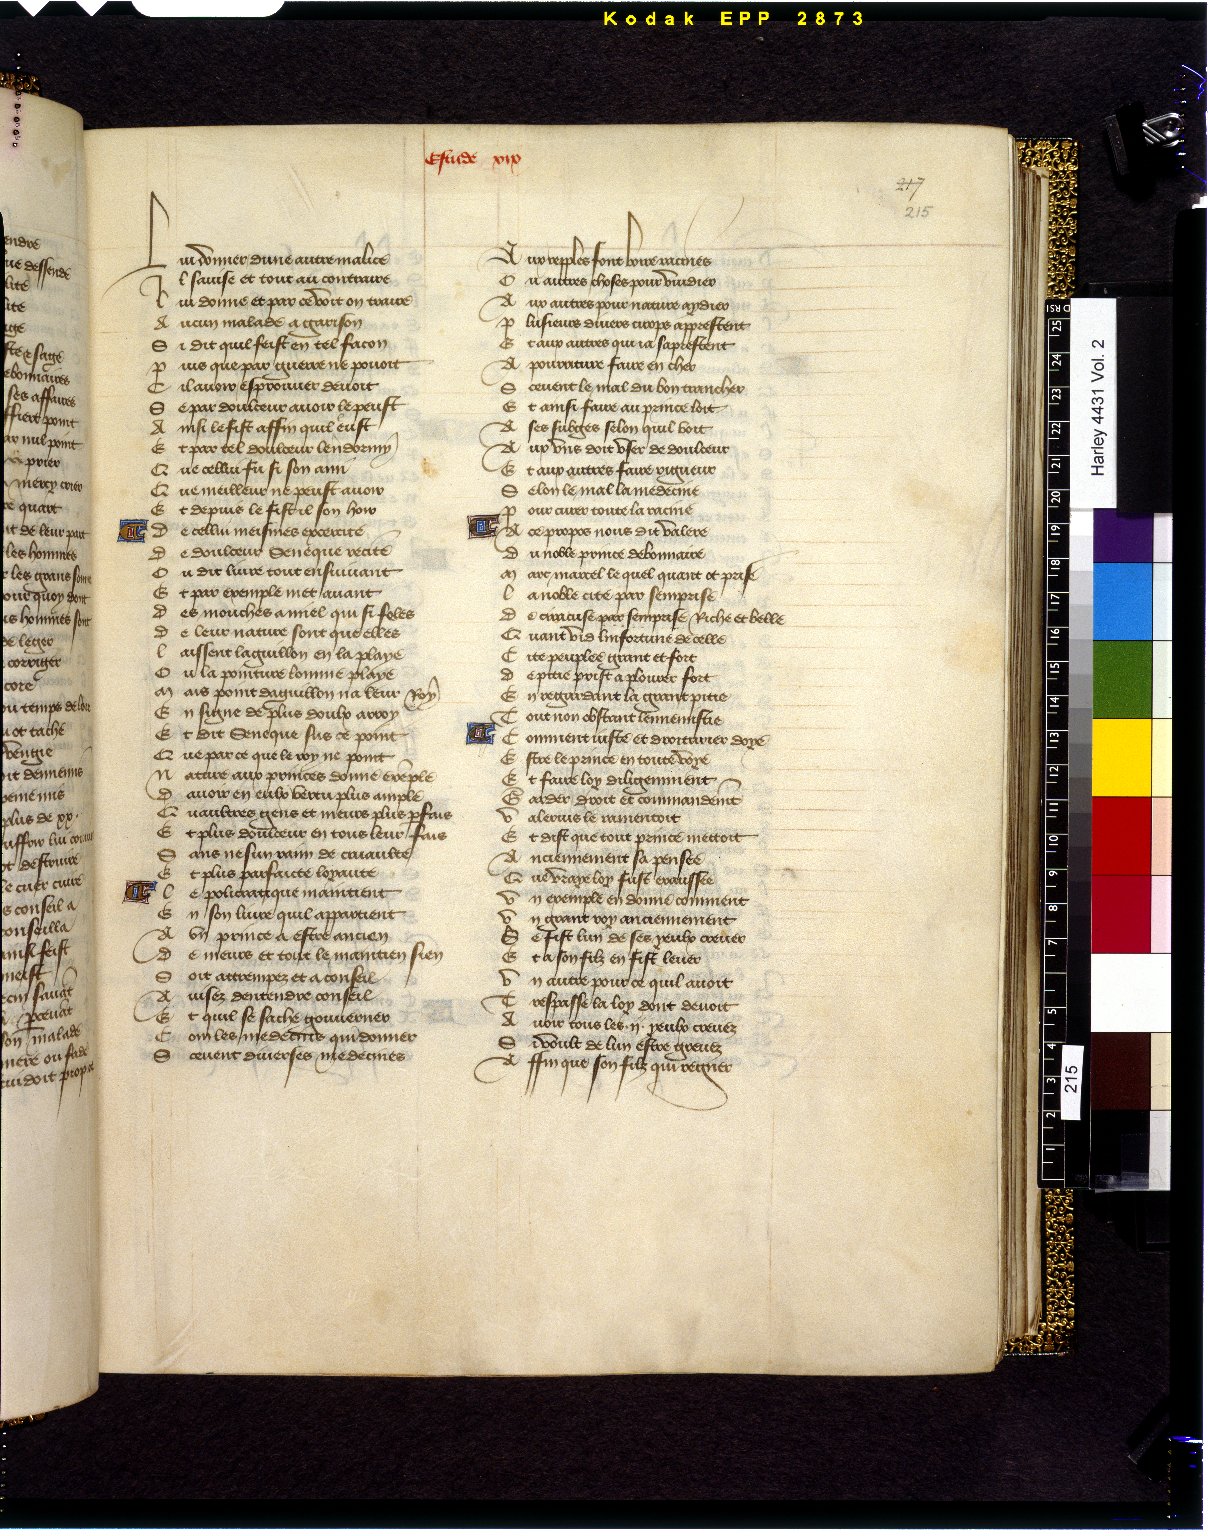 Kodak EPP 2873
Estude xix
217
215
Lui donner dune autre malice
Il sauise et tout au contraire
Lui donne et par ce voit on traire
Aucun malade a garison
Si dit quil feist en tel facon
Puis que par guerre ne pouoit
Cil auoir esprouuer deuoit
Se par doulceur auoir le peust
Ainsi le fist affin quil leust
Et par tel doulceur lendormy
Que cellui fu si son ami
Que meilleur ne peust auoir
Et depuis le fist il son hoir
De cellui meismes excercite
De doulceur Seneque recite
Ou dit liure tout ensuiuant
Et par exemple met auant
Des mouches a miel qui si feles
De leur nature sont que elles
Laissent laguillon en la playe
Ou la pointure lomme playe
Mais point daguillon na leur Roy
En signe de plus doulx arroy
Et dit Seneque sus ce point
Que par ce que le roy ne point
Nature aux princes donne exemple
Dauoir en eulx vertu plus ample
Quaultres gens et meurs plus parfais
Et plus doulceur en tous leur fais
Sans nesun raim de cruaulte
Et plus parfaicte loyaute
Le policratique maintient
En son liure quil appartient
A vn prince a estre ancien
De meurs et tout le maintien sien
Soit attrempez et a conseil
Auisez dentendre conseil
Et quil se sache gouuerner
Com les medecins qui donner
Sceuent diuerses medecines
Aux repples font boire racines
Ou autres choses pour vuidier
Aux autres pour nature aydier
Plusieurs diuers cirops apprestent
Et aux autres qui ia saprestent
A pourreture faire en cher
Sceuent le mal du bon trancher
Et ainsi faire au prince loit
A ses subges selon quil voit
Aux vns doit vser de doulceur
Et aux autres faire rigueur
Selon le mal la medecine
Pour curer toute la racine
A ce propos nous dit valere
Du noble prince debonnaire
Marc marcel le quel quant ot prise
La noble cite par semprise
De ciracuse par semprise Riche et belle
Quant vid linfortune de celle
Cite peuplee grant et fort
De pitie prist a plourer fort
En regardant la grant pitie
Tout non obstant lennemistie
Comment iuste et droiturier doye
Estre le prince en toute voye
Et faire loy diligemment
Garder droit et commandement
Valerius le ramentoit
Et dist que tout prince mettoit
Anciennement sa pensee
Que vraye loy fust exaussee
Vn exemple en donne comment
Vn grant roy anciennement
Se fist lun de ses yeulx creuer
Et a son filz en fist leuer
Vn autre pour ce quil auoit
Trespasse la loy dont deuoit
Auoir tous les .ii. yeulx creuez
Si voult de lun estre greuez
Affin que son filz qui regner
Harley 4431 Vol. 2
215